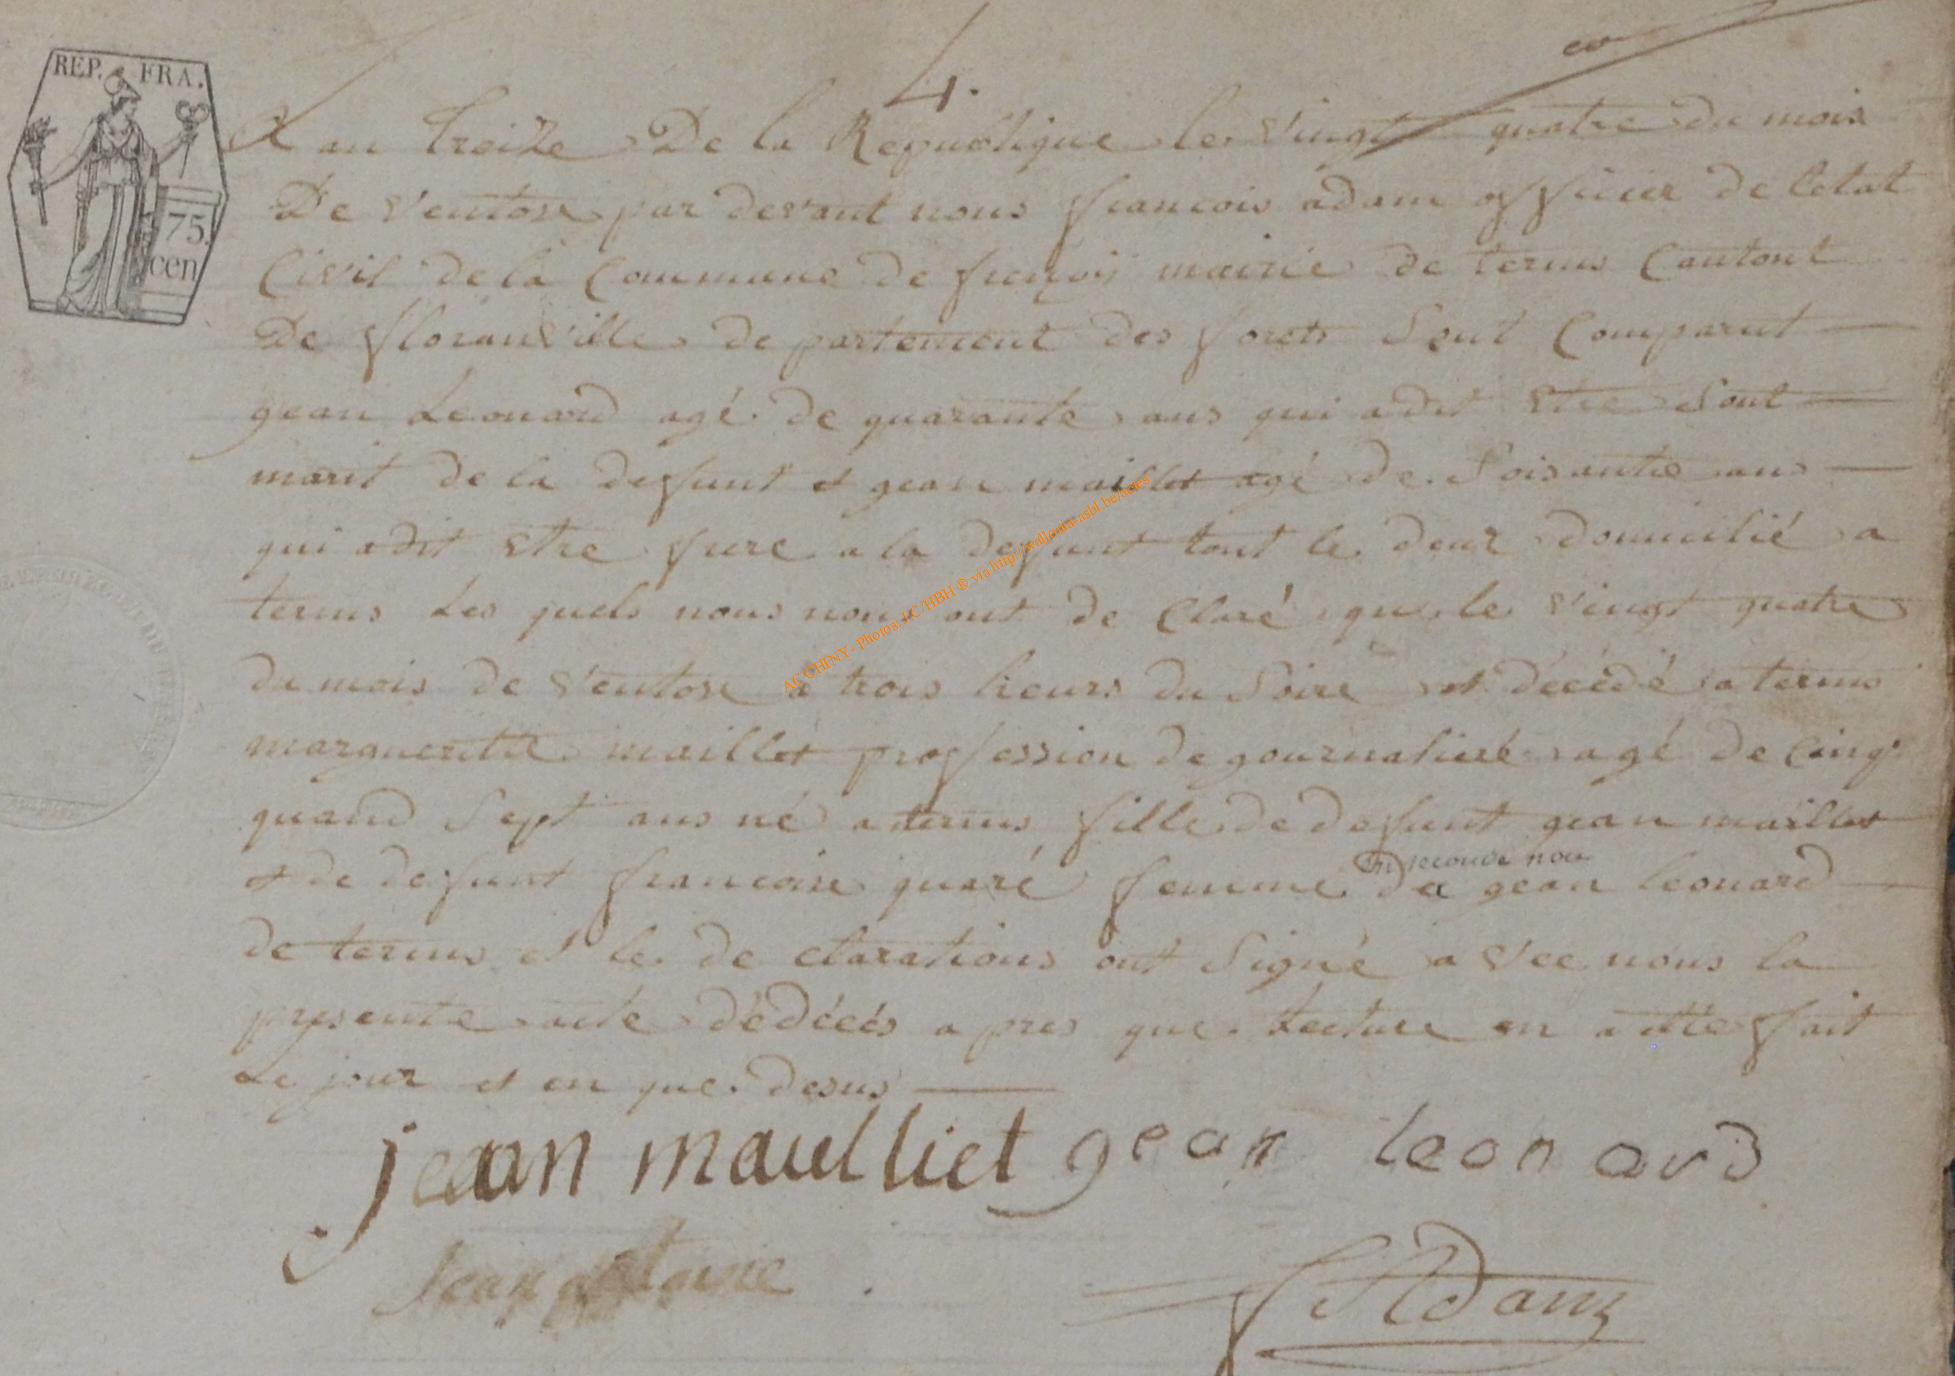 REP. FRA.
75.
cen
4.
L an treize De la Republique le vingt quatre du mois
De ventose par devant nous francois adam officier de letat
Civil de la Commune de mairie de termes Cantont
De floranville departement des forets Sont Comparut
gean Leonard agé de quarante ans qui a dit etre Sont
marit de la defunt et gean maillet agé de Soisante ans
qui a dit etre frere a la defunt tout le deux domicilié a
termes Les quels nous non ont de Claré que le vingt quatre
du mois de ventose a trois heurs du Soire et décédé a termes
marguerite maillet profession de gournaliere agé de Cinq
quand Sept ans né a termes fille de defunt gean maillet
et de defunt francoise quaré femme de gean leonard
en seconde noce
de termes et le de clarations ont Signé a vec nous la
presente acte dédécés a pres que Lecture en a etté fait
Le jour et en que desus
jean maulliet gean leonard
Jean
f Adam
ACCHINY - Photos JC/HBH © via http://